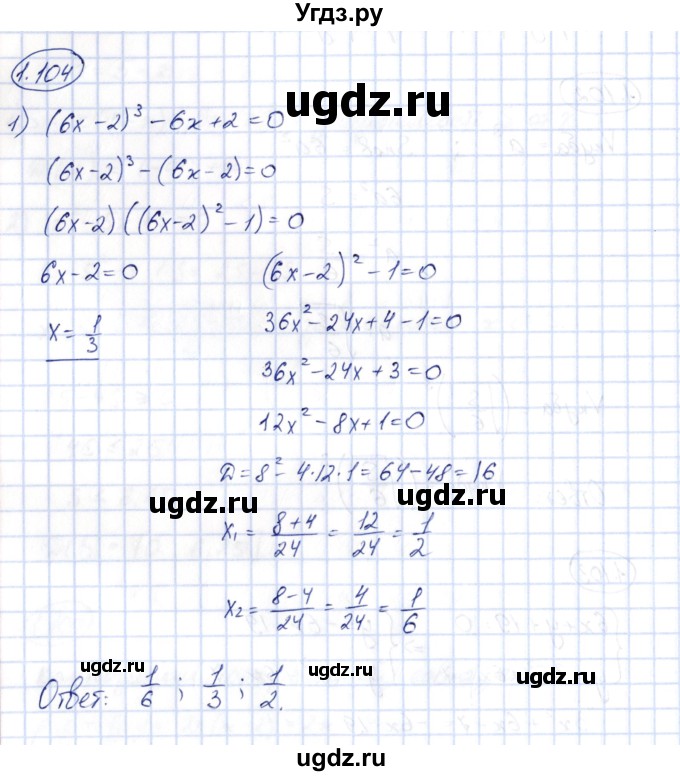 Угдз.ру
1.104
ugdz.ru
1) (6x-2)³-6x+2=0
(6x-2)³-(6x-2)=0
(6x-2)((6x-2)²-1)=0
6x-2=0 (6x-2)²-1=0
x=1/3 36x²-24x+4-1=0
36x²-24x+3=0
12x²-8x+1=0
D=8²-4·12·1=64-48=16
ugdz.ru ugdz.ru
x₁=(8+4)/24=12/24=1/2
x₂=(8-4)/24=4/24=1/6
ugdz.ru ugdz.ru ugdz.ru
Ответ: 1/6; 1/3; 1/2.
ugdz.ru